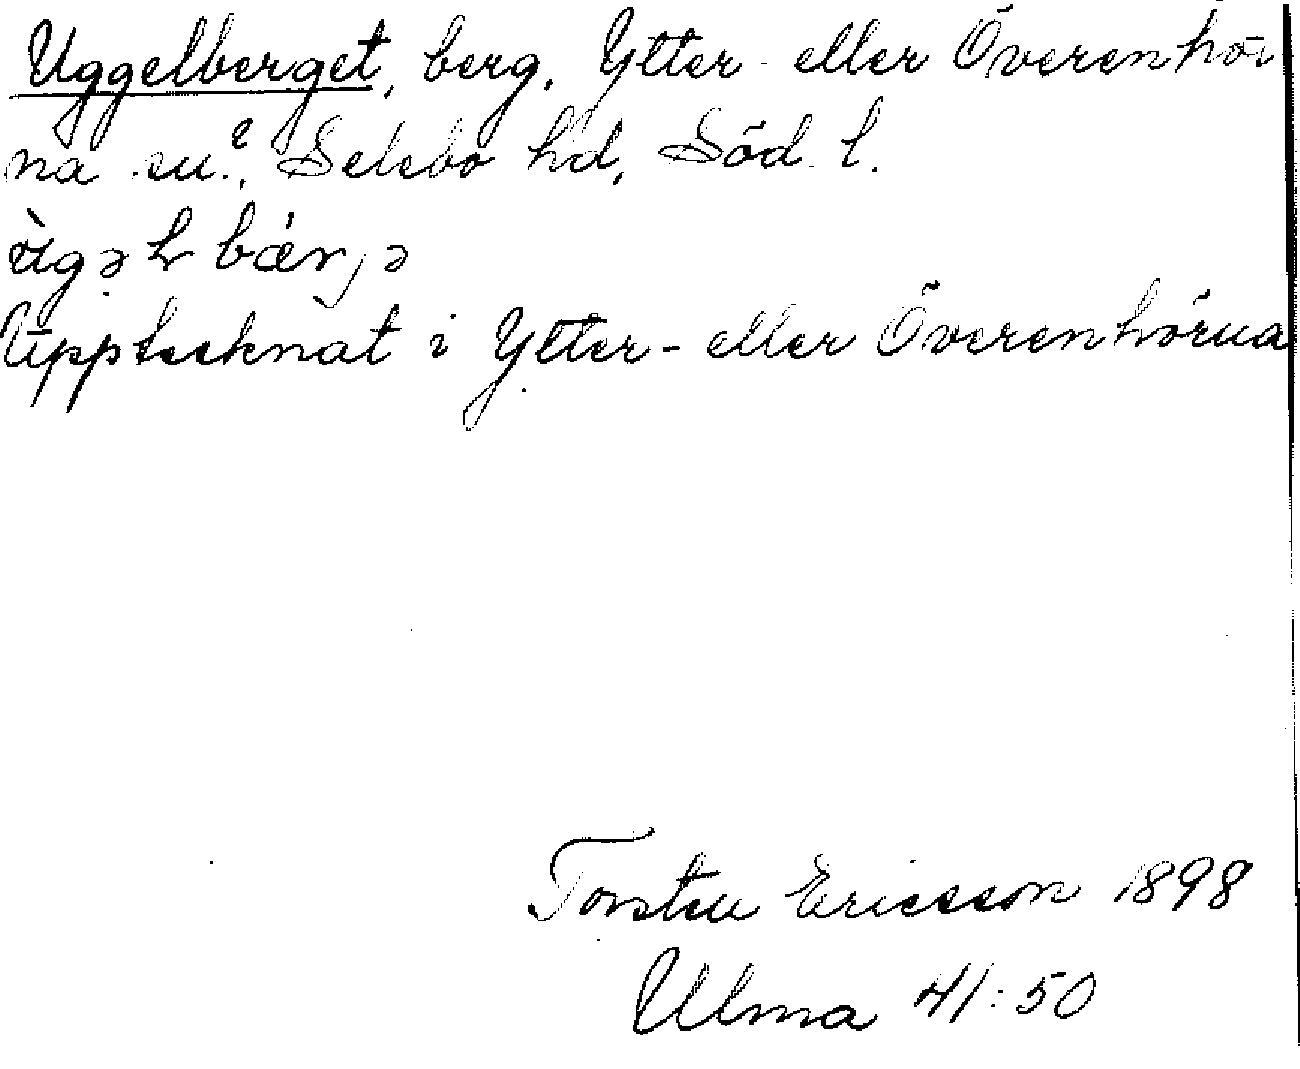 Uggelberget, berg. Ytter- eller Överenhör
na sn?, Selebo hd, Söd. l.
Upptecknat i Ytter- eller Överenhörna
Torsten Ericsson 1898
Ulma 41:50